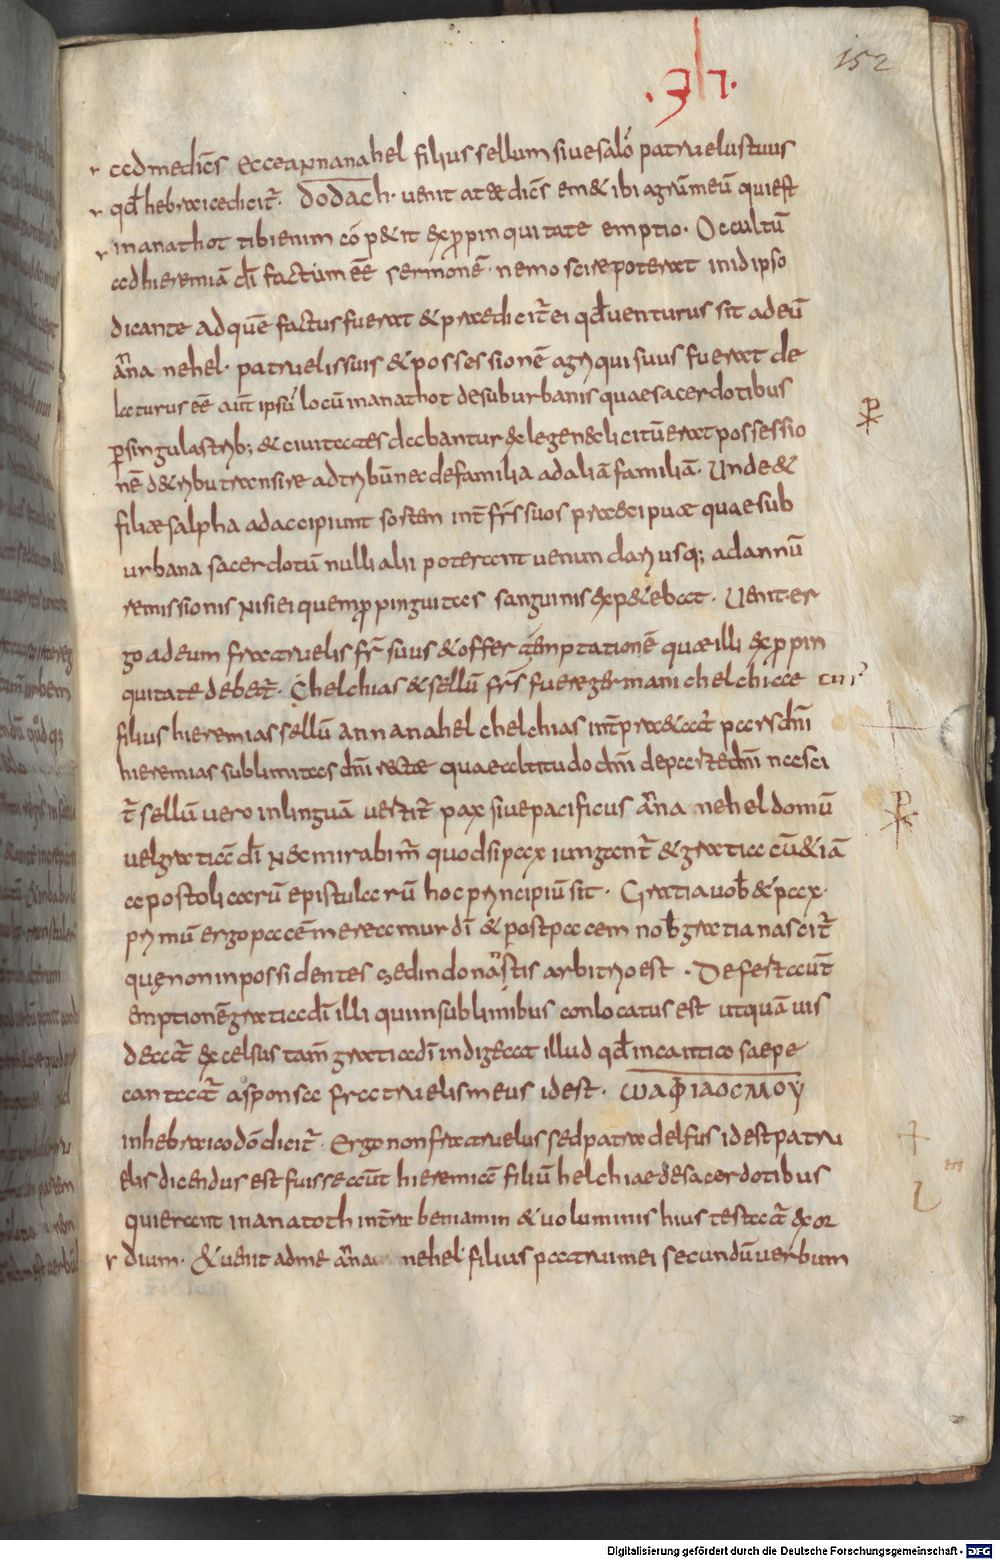 152
r ad mediēs ecce annanahel filius sellum siue salō patruelus tuus
r qd̄ hebraice dicit̄. dodach. uenit at te dicēs em& ibi agrū meū qui est
r in anathot tibi enim cōp&it ex p̄pinquitate emptio. Occultū
ad hieremiā dī factum eē sermonē. nemo scire poterat in id ipso
dicante ad quē factus fuerat & praedicit̄ ei qd̄ uenturus sit ad eū
āna nehel. patruelis suis & possessionē agri qui suus fuerat de
laturus eē aut̄ ipsū locū in anathot de suburbanis quae sacerdotibus
p̄ singulas trib; & ciuitates dabantur & legen& licitū erat possessio
nē d& ributransire ad tribū nec de familia ad aliā familiā. Unde &
filiae salphaad accipiunt sortem int̄ fr̄s suos praecipuae quae sub
urbana sacerdotū nulli alii poterant uenundari usq; ad annū
remissionis nisi ei quem p̄pinguitas sanguinis exp&ebat. Uenit er
go ad eum fratruelis fr̄ suus & offer emptationē quae illi ex p̄pin
quitate debet̄. Chelchias & sellū fr̄s fuere germani chelchiae cui'
filius hieremias sellū annanahel chelchias int̄pra&at̄ pars dn̄i
hieremias sublimitas dn̄i recte quae altitudo dn̄i de parte dn̄i nasci
t̄ sellū uero in linguā uertit̄ pax siue pacificus āna nehel domū
uel gratia dī nec mirabim̄ quod si pax iungant̄ & gratia cū & iā
apostolicarū epistularū hoc principiū sit. Gratia uob̄ & pax.
primū ergo pacem meream̄ur dī & p̄ost pacem nob̄ gratia nascit̄
quę non in possidentes sed in donāstis arbitrio est. De festaūt
emptionē gratia dī illi qui in sublimibus conlocatus est ut quāuis
deat̄ excelsus tam̄ gratia dī indigeat illud qd̄ in cantico saepe
cantat̄ a sponsa fratruelis meus id est. ωαφιαοcμογ
in hebraico dō dicit̄. Ergo non fratruelus sed patradelfus id est patru
elis dicendus est fuisse aut̄ hieremia filiū helchiae de sacerdotibus
qui erant in anatoth int̄ra beniamin & uoluminis hius testat̄ exor
r dium. & uenit ad me āna nehel filius patrui mei secundū uerbum
Digitalisierung gefördert durch die Deutsche Forschungsgemeinschaft - DFG